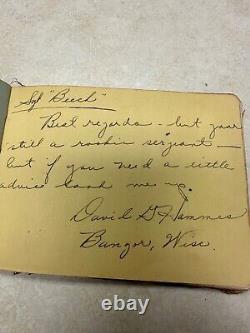 Sgt "Beech"
Best regards - but your
still a rookie sergeant -
but if you need a little
advice look me up.
David G. Hammes
Bangor, Wisc.
ebay